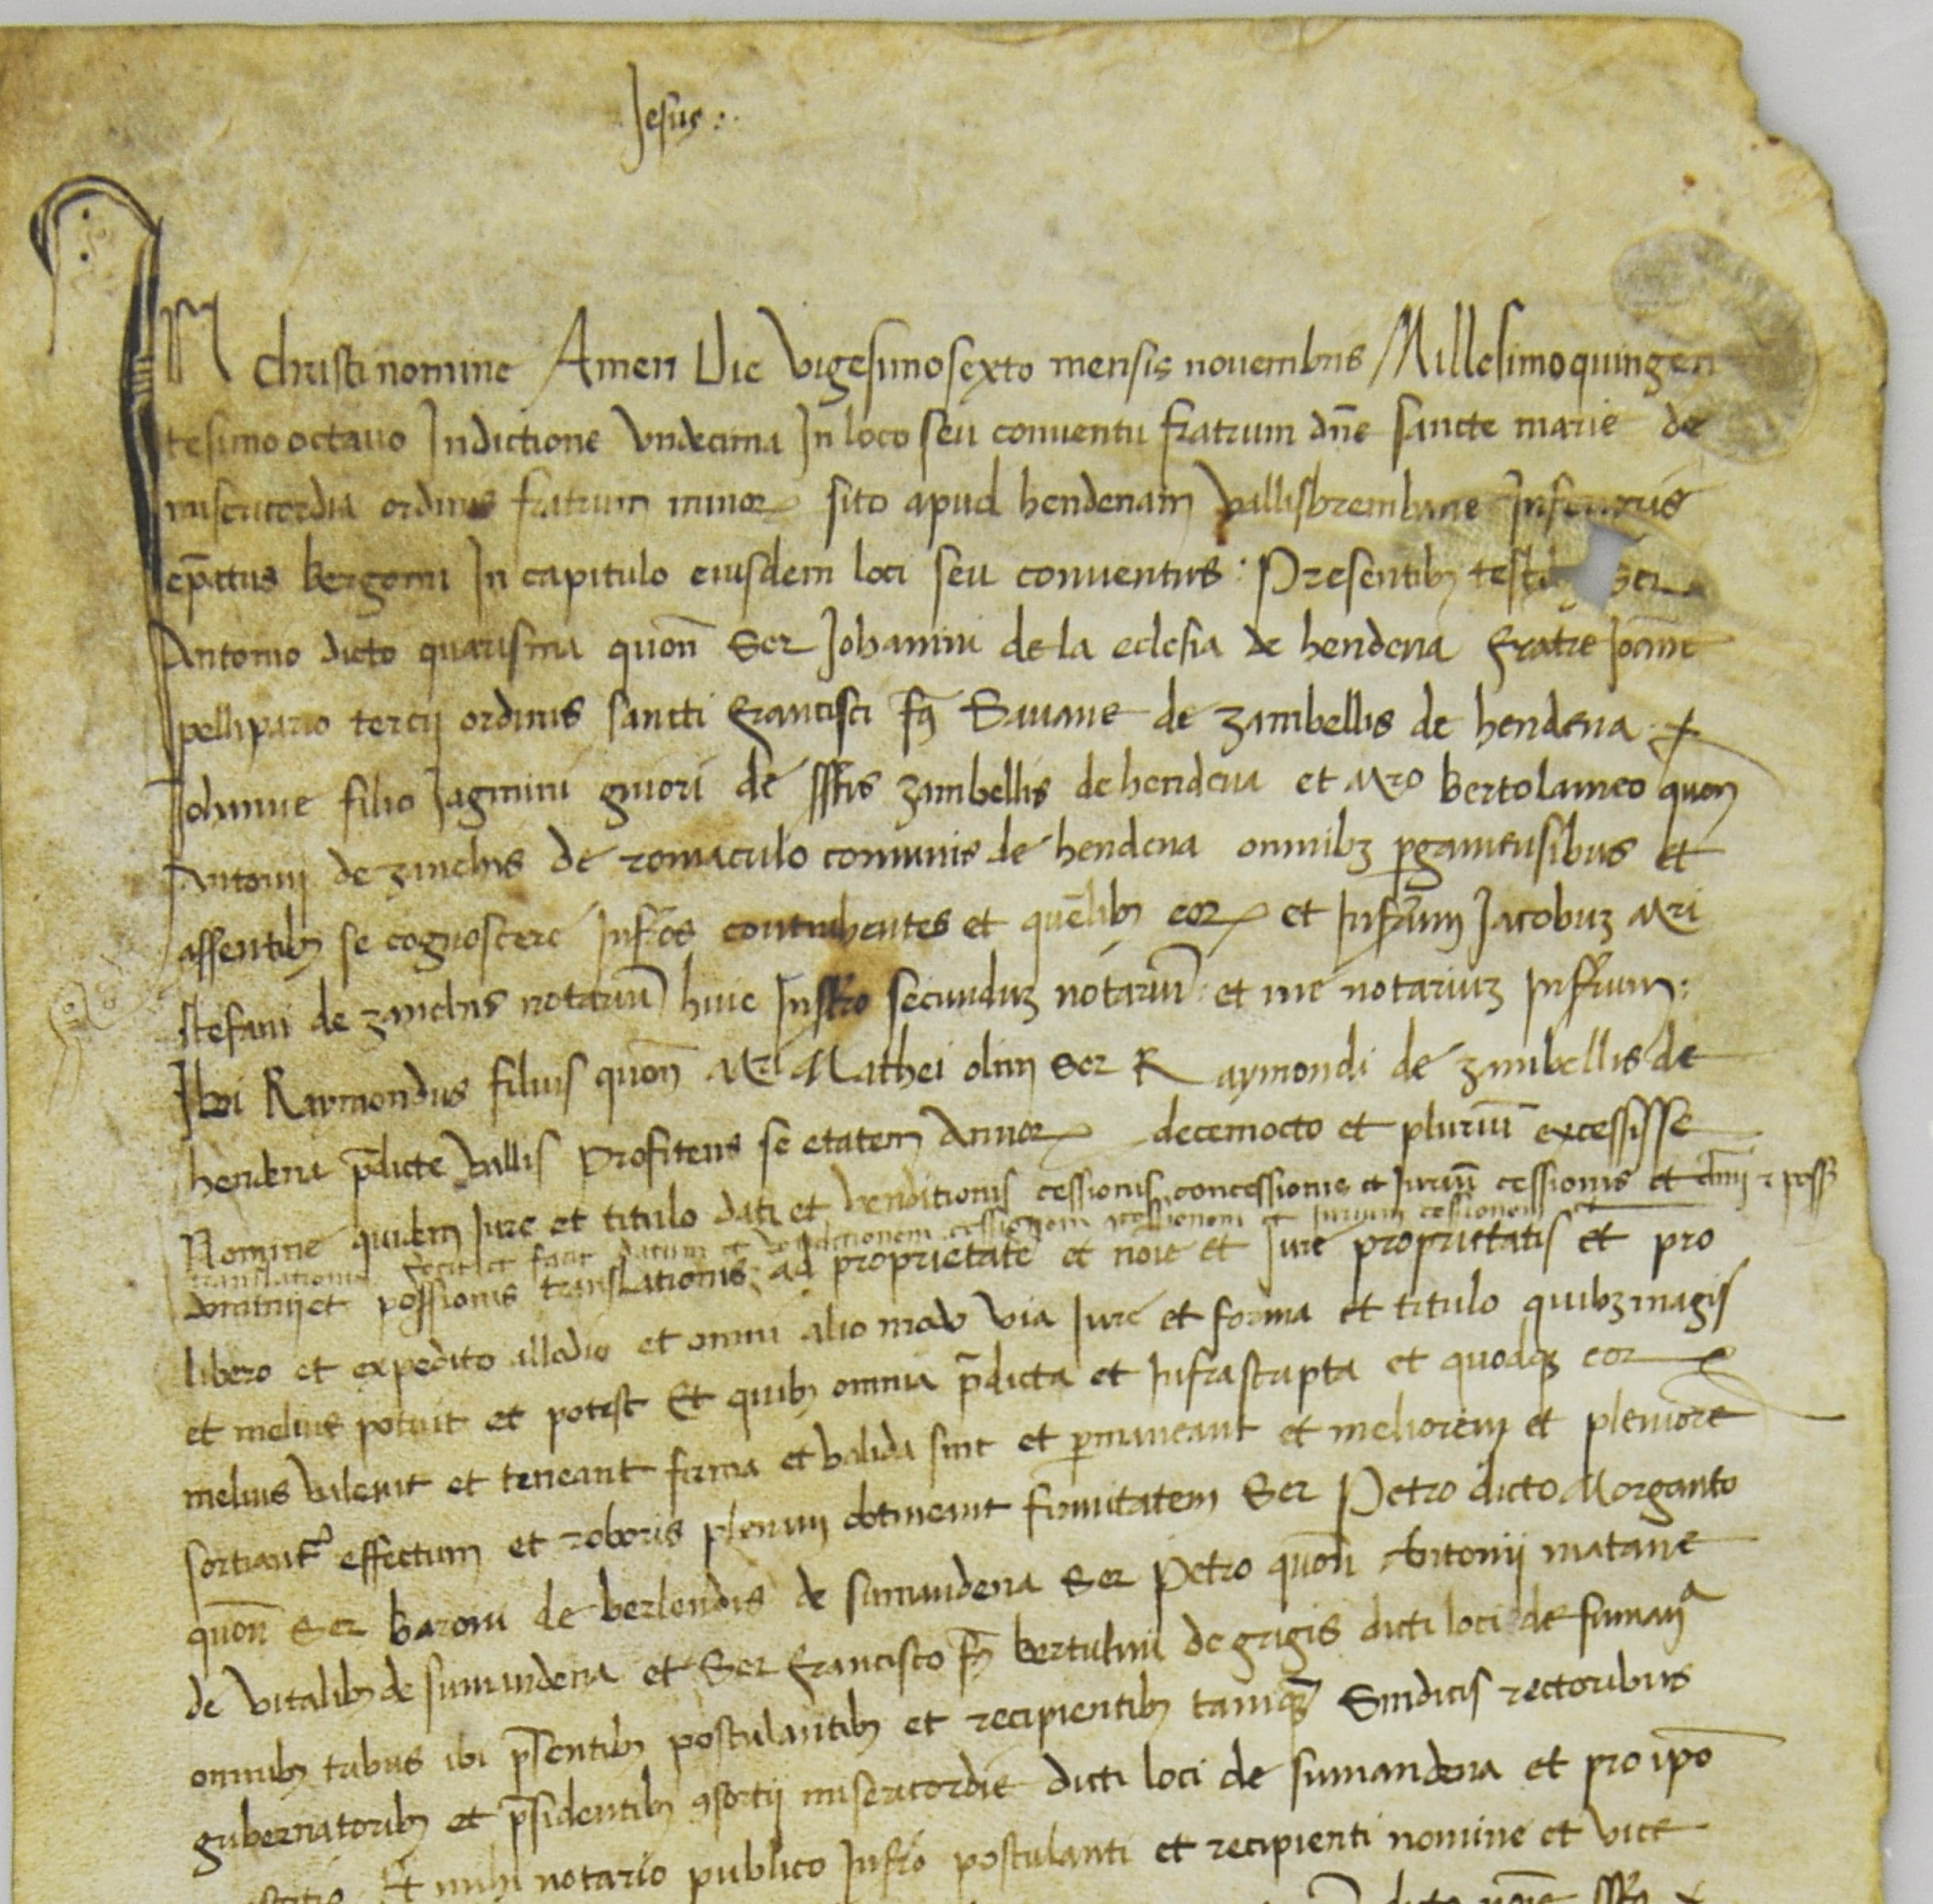 Jesus:
IN christi nomine Amen Die vigesimosexto mensis novembris Millesimoquingen
tesimo octavo Indictione undecima In loco seu conventu fratrum dñe sancte marie de
misericordia ordinis fratrum minorꝝ sito apud hendenam vallisbrembane Inferioris
ep̄atus bergomi In capitulo eiusdem loci seu conventus: Presentibꝫ testibꝫ ser
Antonio dicto quarisma quon̄ ser Johannini de la eclesia de hendena fratre Joan̄e
pellipario tercij ordinis sancti francisci de zambellis de hendena
filio de zambellis de hendena et mr̄o bertolameo quon̄
Antonij de zinchis de romaculo comunis de hendena omnibꝫ ꝑgamensibus et
assentibꝫ se cognoscere Infr̄os contrahentes et quēlibꝫ eorꝝ et Infr̄um Jacobuꝫ mr̄i
stefani de zanchis notariū huic Instr̄o secunduꝫ notariū et me notariuꝫ Infr̄um:
Ibi Raymondus filius quon̄ mr̄i Mathei olim ser Raymondi de zambellis de
hendena p̄dicte vallis Profitens se etatem Annorꝝ decemocto et pluriū excessisse
Nomine quidem Jure et titulo dati et venditionis cessionis concessionis et Juriū cessionis et dnij et poss
translationis fecit et facit datum et venditionem cessionem concessionem et Jurium cessionem et
dominij et possionis translationis ad proprietatē et noīe et Jure proprietatis et pro
libero et expedito allodio et omni alio modo via Jure et forma et titulo quibꝫ magis
et melius potuit et potest Et quibꝫ omnia p̄dicta et Infrascripta et quodqꝫ eorꝝ
melius valeant et teneant firma et valida sint et ꝑmaneant et meliorem et pleniorē
sortiantr̄ effectum et roboris plenam obtineant firmitatem Ser Petro dicto Morganto
quon̄ ser baroni de berlendis de sumandena ser Petro quon̄ Antonij matane
de vitalibꝫ de sumandena et ser francisco bertulini de grigis dicti loci de
omnibꝫ tribus ibi p̄sentibꝫ postulantibꝫ et recipientibꝫ tamqꝫ Sindicis rectoribus
gubernatoribꝫ et p̄sidentibꝫ ꝯsortij misericordie dicti loci de sumandena et pro ip̄o
Et mihi notario publico Infr̄o postulanti et recipienti nomine et vice